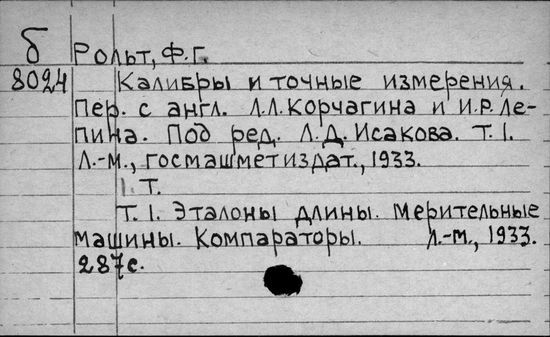 б Рольт, Ф.Г.
8024 Калибры и точные измерения.
Пер. с англ. Л.Л.Корчагина и И.Р.Ле-
пина. Под ред. Л.Д.Исакова. Т.1.
Л.-м., госмашметиздат., 1933.
1. Т.
Т.1. Эталоны длины. Мерительные
машины. Компараторы. Л.-м., 1933.
287с.